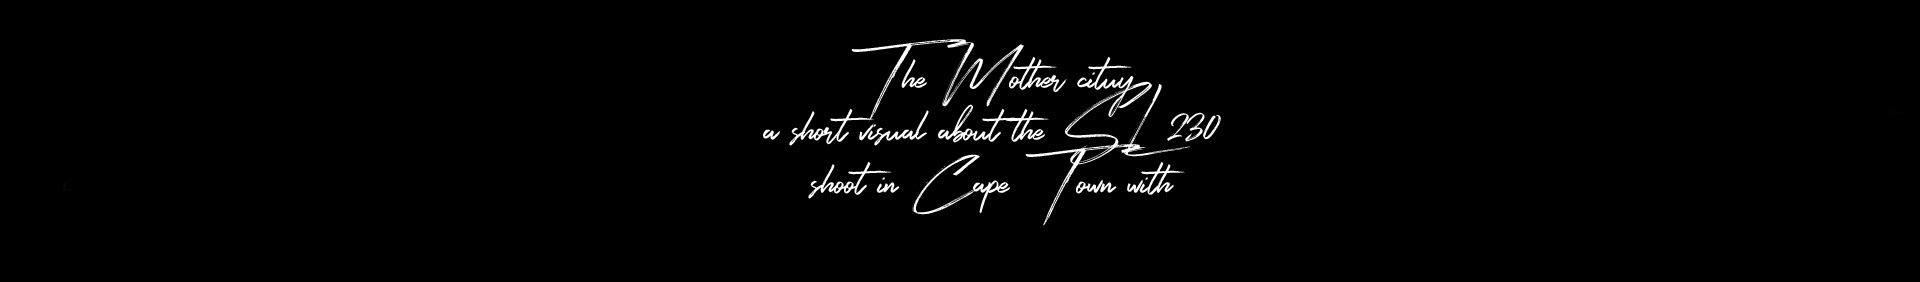 The Mother cituy
a short visual about the SL 230
shoot in Cape Town with